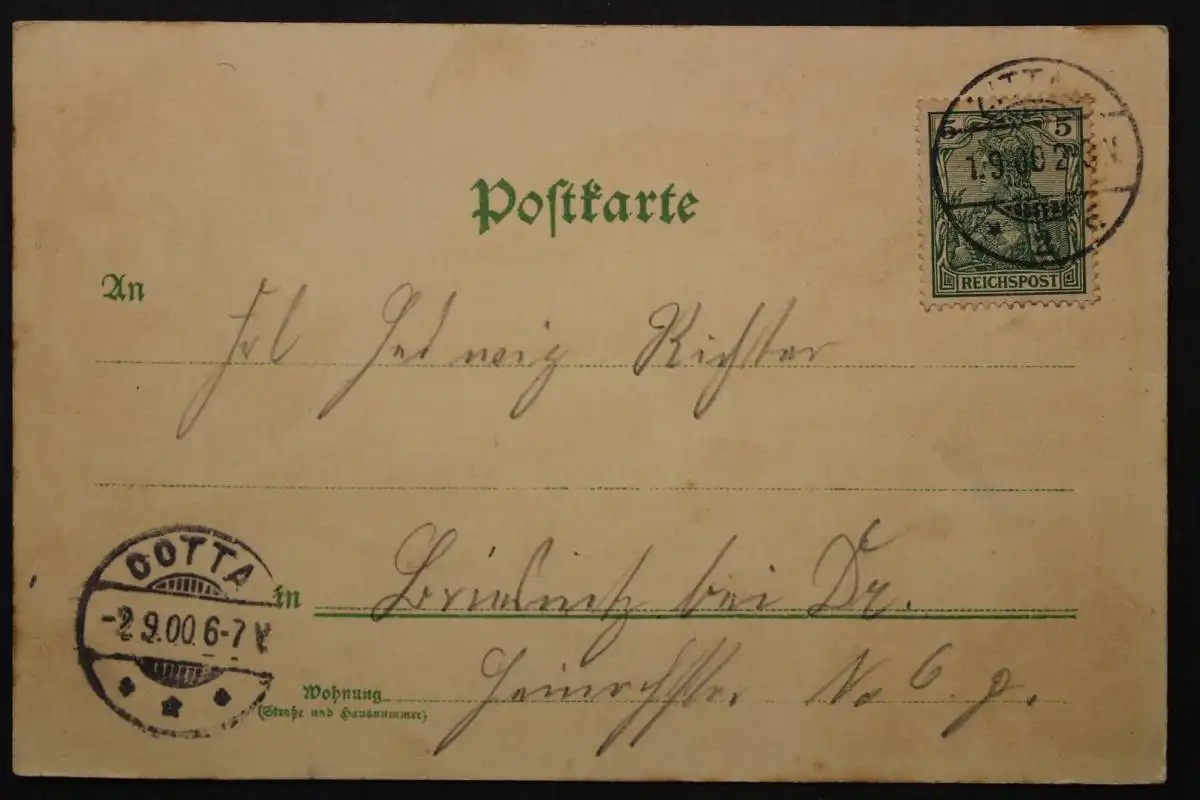 Postkarte
5 5
1.9.00 2-3N
REICHSPOST
An
Frl Hedwig Richter
COTTA
-2.9.00.6-7V
in Briesnitz bei Dr.
Wohnung
(Straße und Hausnummer)
No 6.